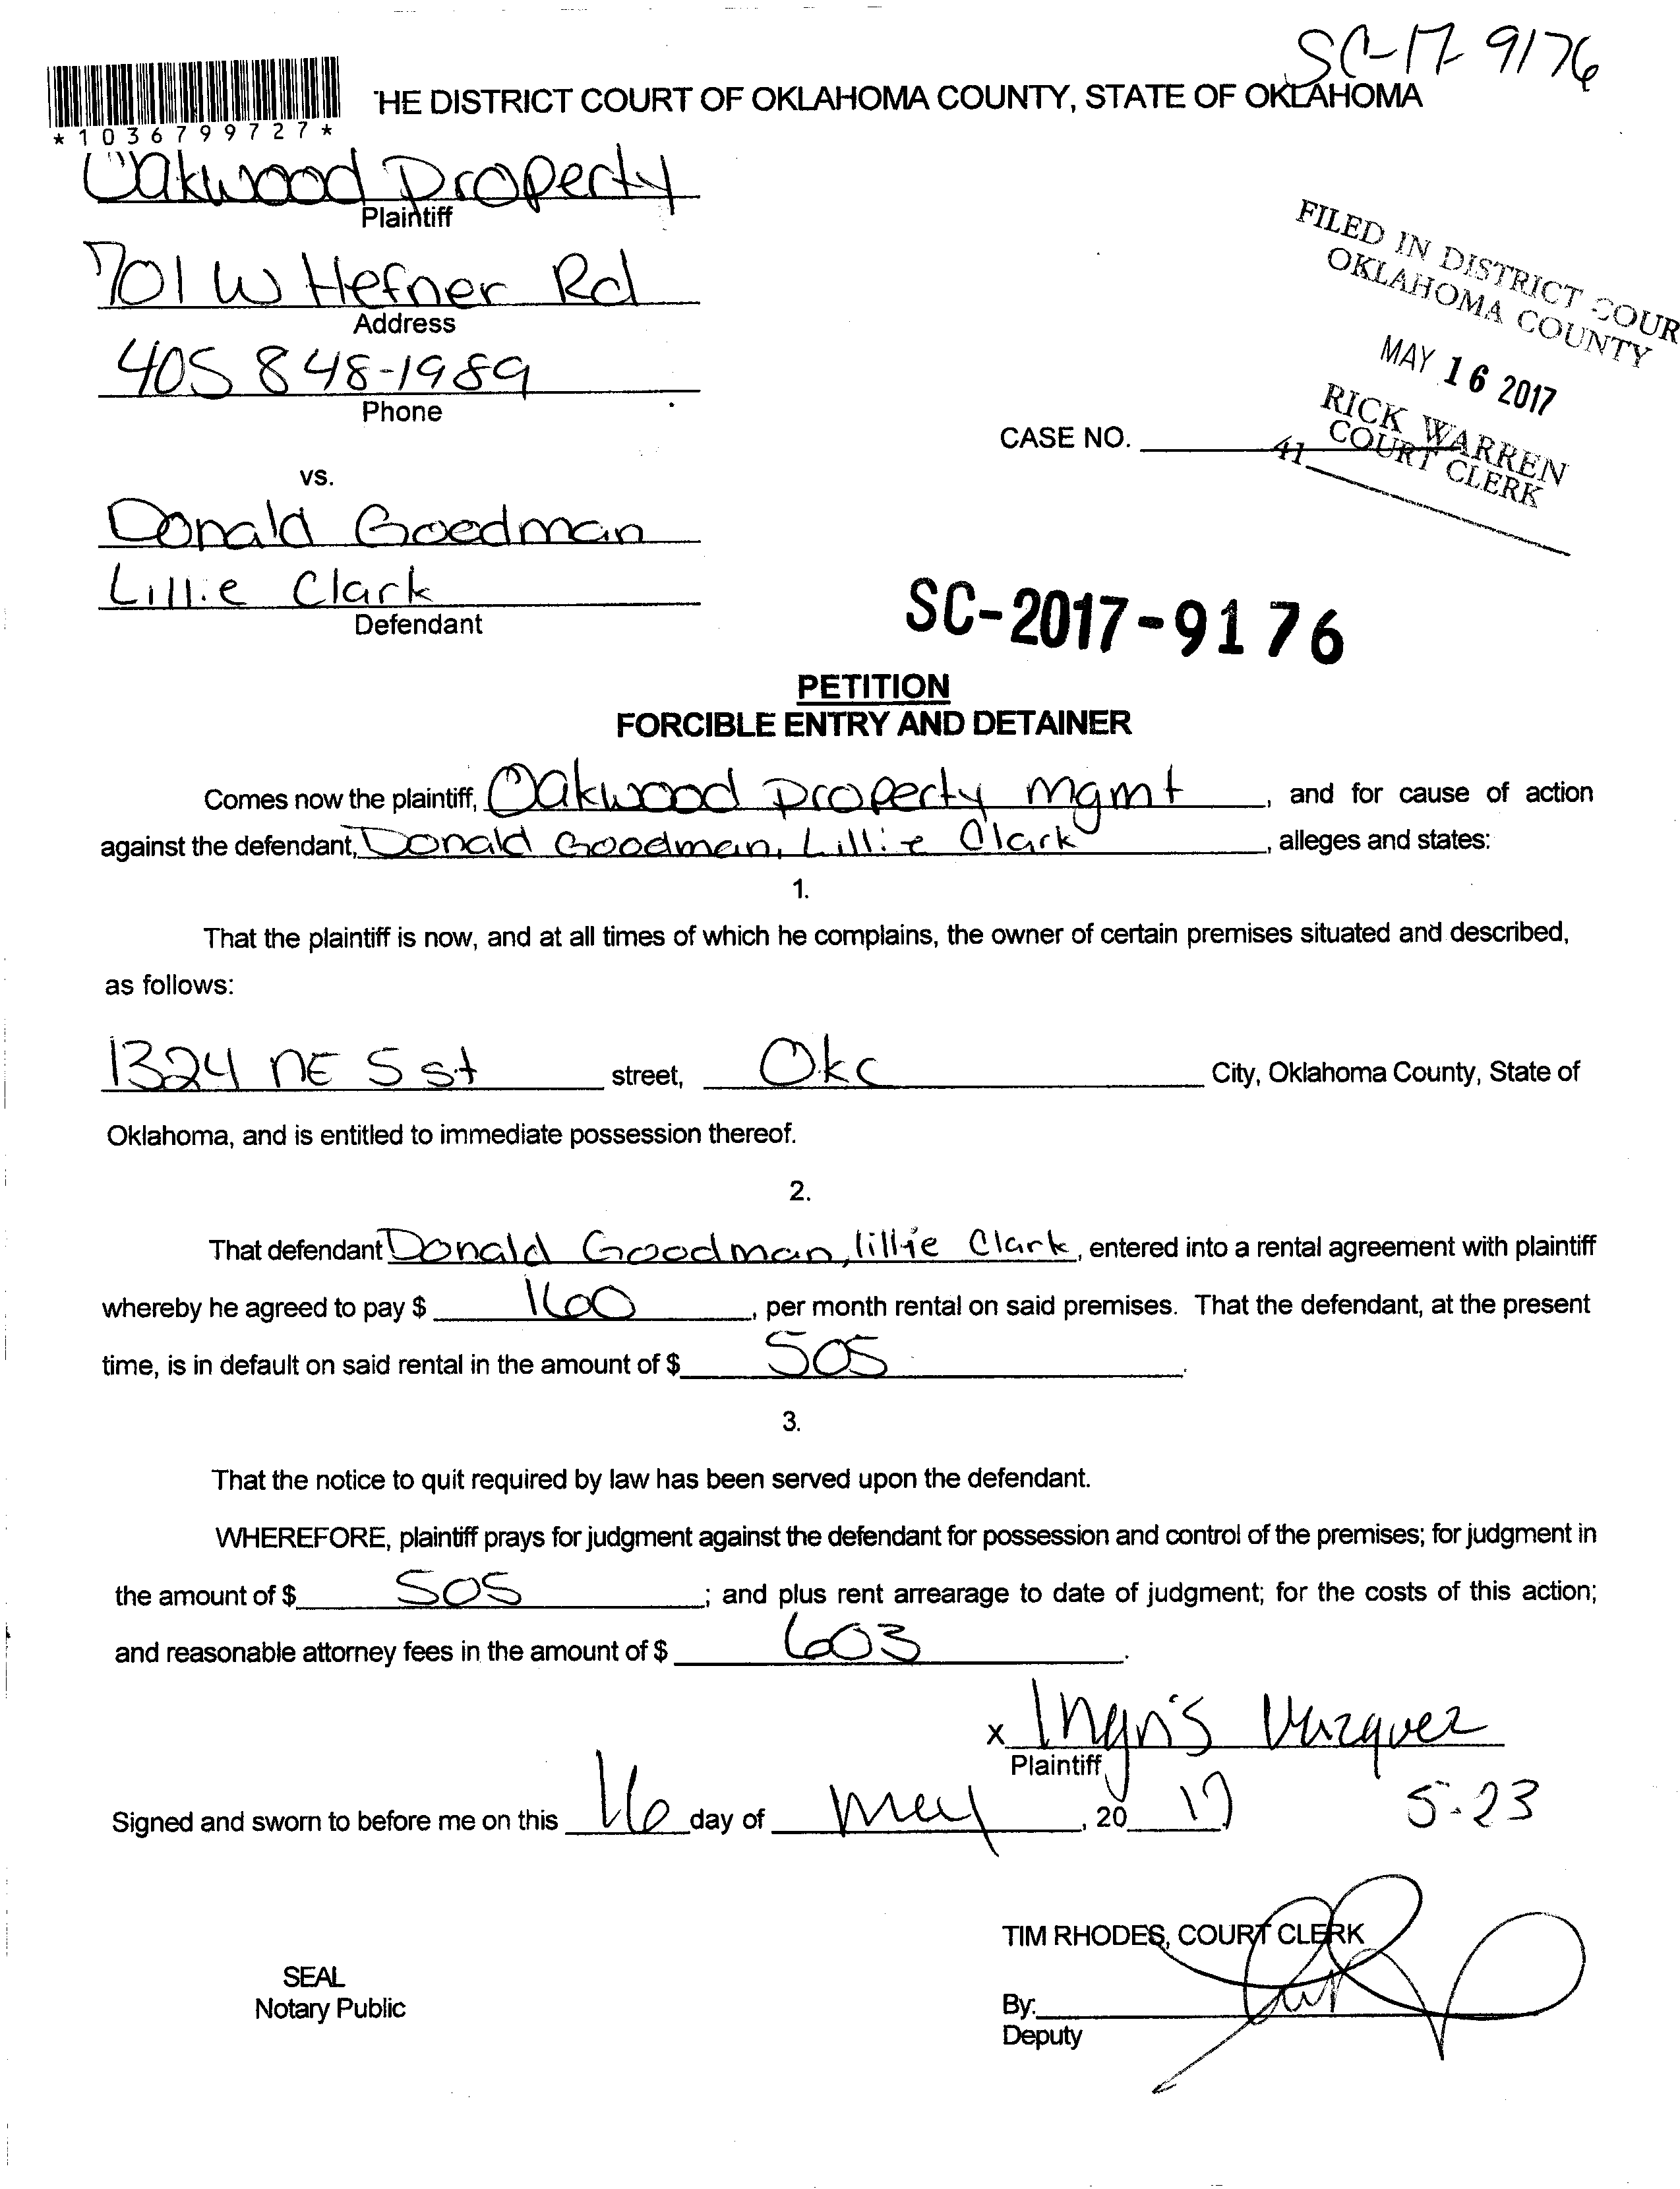 SC-17-9176
*1036799727*
'HE DISTRICT COURT OF OKLAHOMA COUNTY, STATE OF OKLAHOMA
Oakwood Property
Plaintiff
701 W Hefner Rd
Address
405 848-1989
Phone
FILED IN DISTRICT COUR
OKLAHOMA COUNTY
MAY 16 2017
RICK WARREN
COURT CLERK
41
CASE NO.
vs.
Donald Goodman
Lillie Clark
Defendant
SC-2017-9176
PETITION
FORCIBLE ENTRY AND DETAINER
Comes now the plaintiff, Oakwood Property mgmt, and for cause of action
against the defendant, Donald Goodman, Lillie Clark, alleges and states:
1.
That the plaintiff is now, and at all times of which he complains, the owner of certain premises situated and described,
as follows:
1324 NE 5 st street, Okc City, Oklahoma County, State of
Oklahoma, and is entitled to immediate possession thereof.
2.
That defendant Donald Goodman, lillie Clark, entered into a rental agreement with plaintiff
whereby he agreed to pay $ 160, per month rental on said premises. That the defendant, at the present
time, is in default on said rental in the amount of $ 505.
3.
That the notice to quit required by law has been served upon the defendant.
WHEREFORE, plaintiff prays for judgment against the defendant for possession and control of the premises; for judgment in
the amount of $ 505; and plus rent arrearage to date of judgment; for the costs of this action;
and reasonable attorney fees in the amount of $ 603.
x Ingris Vazquez
Plaintiff
Signed and sworn to before me on this 16 day of May, 2017
5-23
TIM RHODES, COURT CLERK
SEAL
Notary Public
By:
Deputy